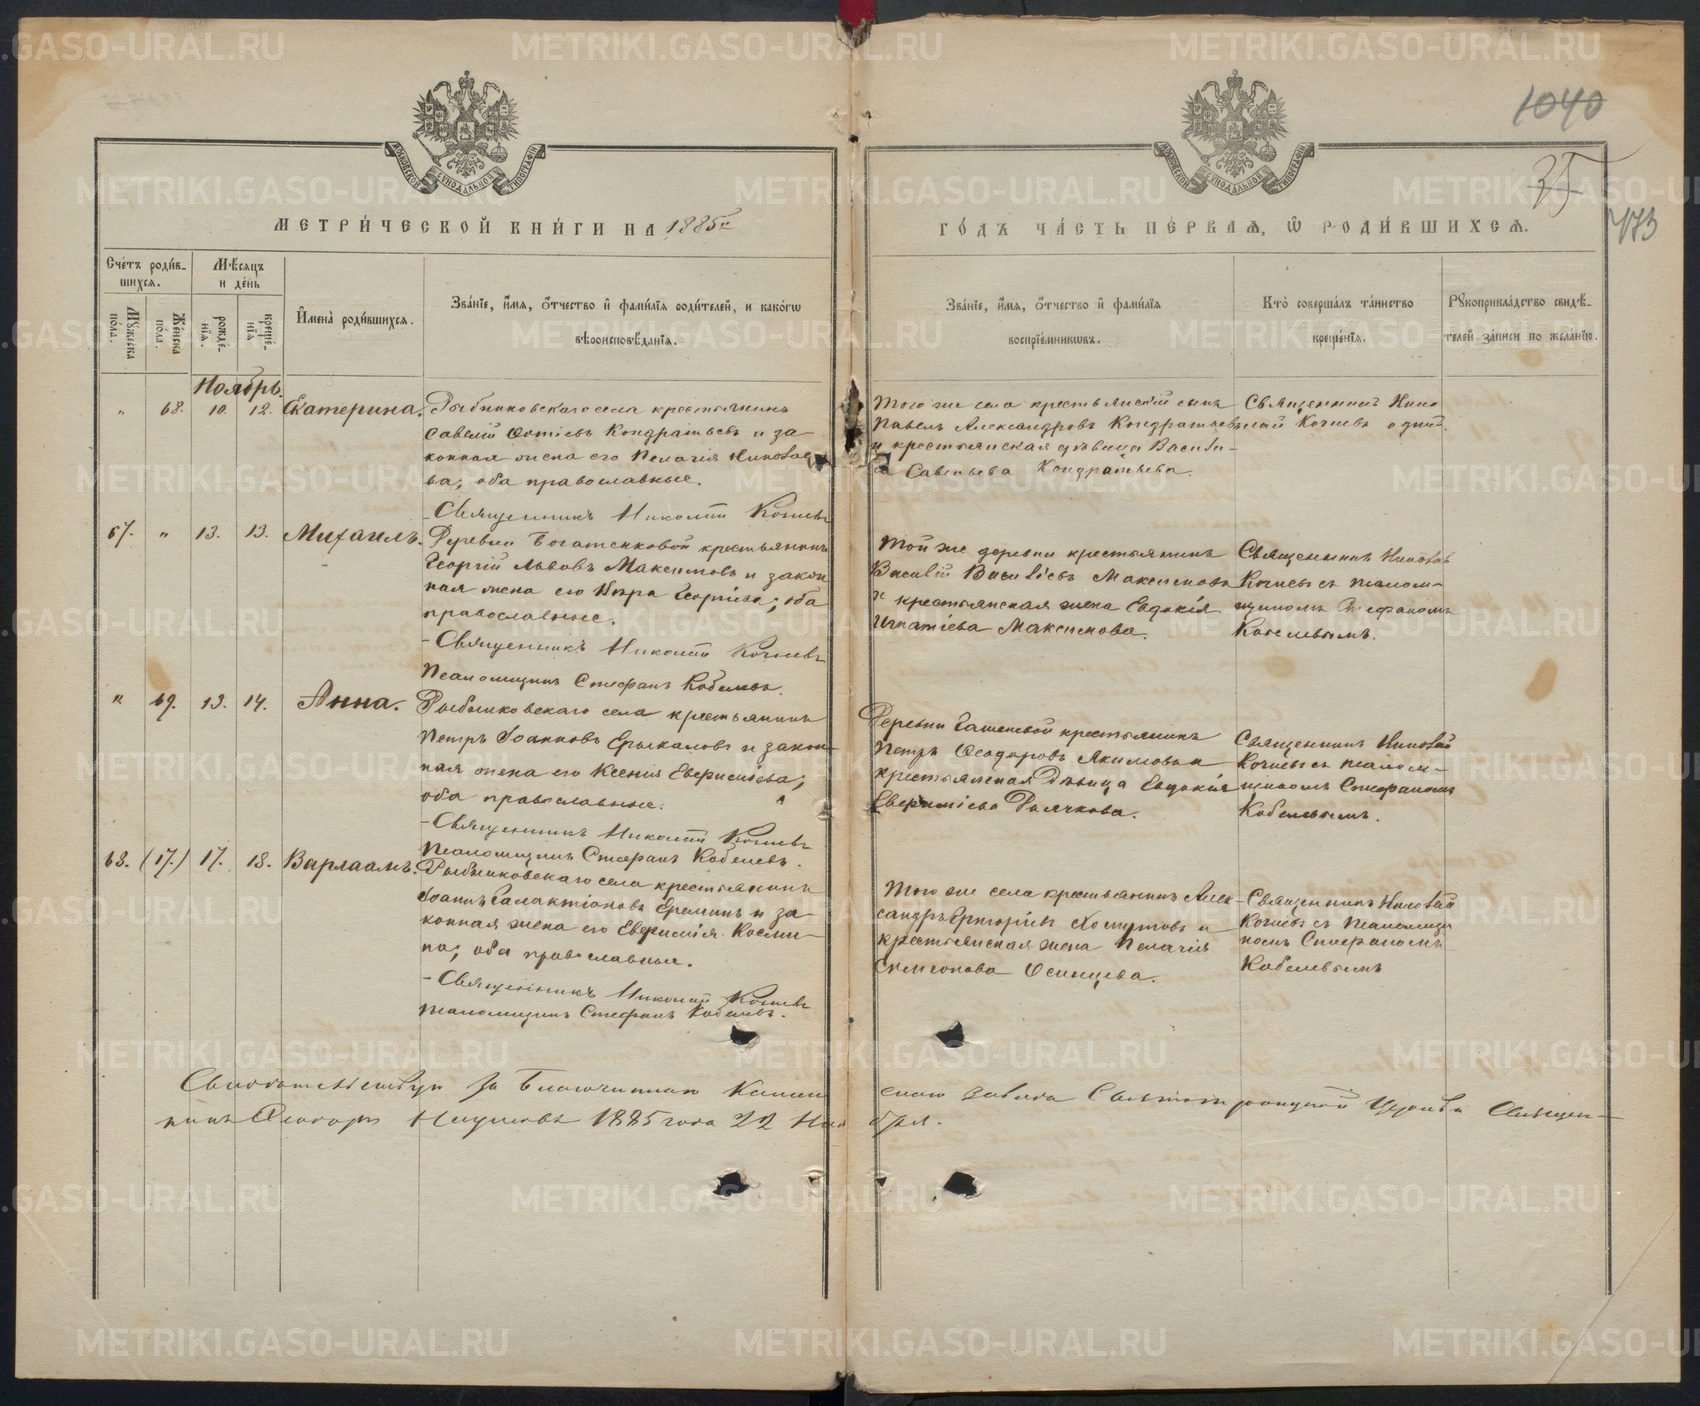 1040
35
473
МОСКОВСКОЙ СУНОДАЛЬНОЙ ТИПОГРАФІИ
МОСКОВСКОЙ СУНОДАЛЬНОЙ ТИПОГРАФІИ
МЕТРИ́ЧЕСКОЙ КНИ́ГИ НА 1885й
ГО́ДЪ ЧА́СТЬ ПЕ́РВАѦ, Ѽ РОДИ́ВШИХСѦ.
Сче́тъ роди́в-
шихсѧ.
Мꙋ́жеска по́ла.
Же́нска по́ла.
Мѣ́сѧцъ
и де́нь
рожде́-нїѧ.
креще́-нїѧ
И҆мена̀ роди́вшихсѧ.
Зва́нїе, и҆́мѧ, ѻ҆́тчество и҆ фами́лїѧ роди́телей, и како́гѡ
вѣроисповѣ́данїѧ.
Зва́нїе, и҆́мѧ, ѻ҆́тчество и҆ фами́лїѧ
воспрїе́мникѡвъ.
Кто̀ соверша́лъ та́инство
креще́нїѧ.
Рꙋкоприкла́дство свидѣ́-
телей за́писи по жела́нїю.
Ноябрь.
" 68. 10. 12. Екатерина.
Рыбниковскаго села крестьянинъ
Савелій Фотіевъ Кондратьевъ и за-
конная жена его Пелагія Николае-
ва; оба православные.
Священникъ Николай Кочневъ
Того же села крестьянскій сынъ
Павелъ Александровъ Кондратьевъ
и крестьянская дѣвица Васили-
са Савельева Кондратьева.
Священникъ Нико-
лай Кочневъ одинъ.
67. " 13. 13. Михаилъ.
Деревни Богатенковой крестьянинъ
Георгій Львовъ Максимовъ и закон
ная жена его Кира Георгіева; оба
православные.
- Священникъ Николай Кочневъ
Псаломщикъ Стефанъ Кобелевъ.
Той же деревни крестьянинъ
Василій Василіевъ Максимовъ
и крестьянская жена Евдокія
Игнатіева Максимова.
Священникъ Николай
Кочневъ съ псалом-
щикомъ Стефаномъ
Кобелевымъ.
" 69. 13. 14. Анна.
Рыбниковскаго села крестьянинъ
Петръ Іоанновъ Ерыкаловъ и закон-
ная жена его Ксенія Евфиміева;
оба православные.
- Священникъ Николай Кочневъ
Псаломщикъ Стефанъ Кобелевъ.
Деревни крестьянинъ
Петръ Ѳеодоровъ Якимовъ и
крестьянская дѣвица Евдокія
Евфиміева
Священникъ Николай
Кочневъ съ псалом-
щикомъ Стефаномъ
Кобелевымъ.
68. (17.) 17. 18. Варлаамъ.
Рыбниковскаго села крестьянинъ
Іоаннъ Галактіоновъ Ереминъ и за-
конная жена его Евфимія Косми-
на; оба православные.
- Священникъ Николай Кочневъ
Псаломщикъ Стефанъ Кобелевъ.
Того же села крестьянинъ Алек-
сандръ Григорьевъ Хомутовъ и
крестьянская жена Пелагія
Симеонова Осинцева.
Священникъ Николай
Кочневъ съ Псаломщи
комъ Стефаномъ
Кобелевымъ
Свидетельствую за Благочиннаго
скаго завода Свято-троицкой Церкви Священ-
никъ Ѳеодоръ Наумовъ 1885 года 22 Ноя
бря.
METRIKI.GASO-URAL.RU